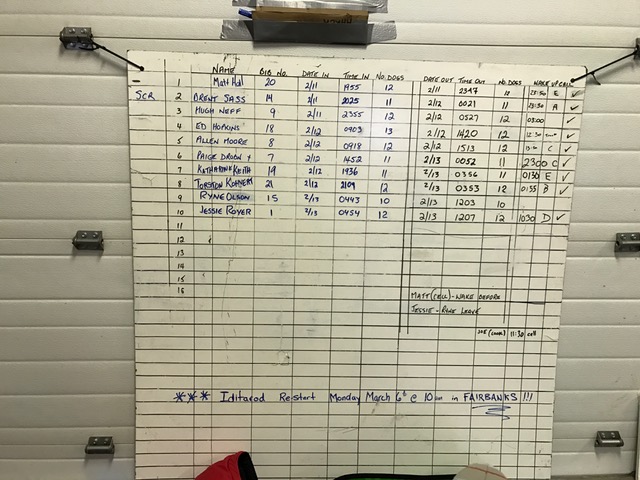 NAME BIB NO. DATE IN TIME IN NO. DOGS DATE OUT TIME OUT NO. DOGS WAKE UP CALL
1 Matt Hall 20 2/11 1955 12 2/11 2347 12 23:30 E ✓
SCR 2 BRENT SASS 14 2/11 2025 11 2/12 0021 11 23:30 A ✓
3 HUGH NEFF 9 2/11 2355 12 2/12 0527 12 03:00 ✓
4 ED HOPKINS 18 2/12 0903 13 2/12 1420 12 12:30 ✓
5 ALLEN MOORE 8 2/12 0918 12 2/12 1513 12 C ✓
6 PAIGE 7 2/12 1452 11 2/13 0052 11 2300 C ✓
7 KATHERINE KEITH 19 2/12 1936 11 2/13 0356 11 0130 E ✓
8 TORSTEN 21 2/12 2109 12 2/13 0353 12 0155 B ✓
9 RYNE OLSON 15 2/13 0443 10 2/13 1203 10
10 JESSIE ROYER 1 2/13 0454 12 2/13 1207 12 1030 D ✓
11
12
13
14
15
16
MATT (CELL) - WAKE BEFORE
JESSIE - RYNE LEAVE
JOE (COOK) 11:30 cell
*** Iditarod Re-start Monday March 6th @ 10am in FAIRBANKS !!!